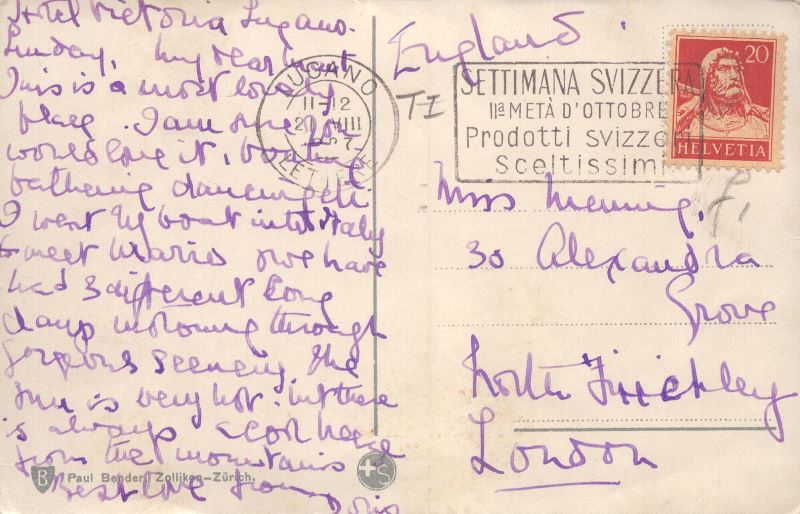 Hotel Victoria Lugano.
Sunday, My dear
This is a most lovely
place. I am sure you
would love it, boating
bathing dancing etc.
I went by boat into Italy
to meet Marie & we have
had 3 different long
days motoring through
gorgeous scenery, the
sun is very hot. but there
is always a cool
from the mountains
Best love from
Doris
England.
LUGANO
11-12
LETTERE
SETTIMANA SVIZZERA
IIª METÀ D'OTTOBRE
Prodotti svizzeri
Sceltissimi
20
HELVETIA
TI
Miss Menning,
30 Alexandra
Grove
North Finchley
London
B Paul Bender, Zollikon-Zürich.
S